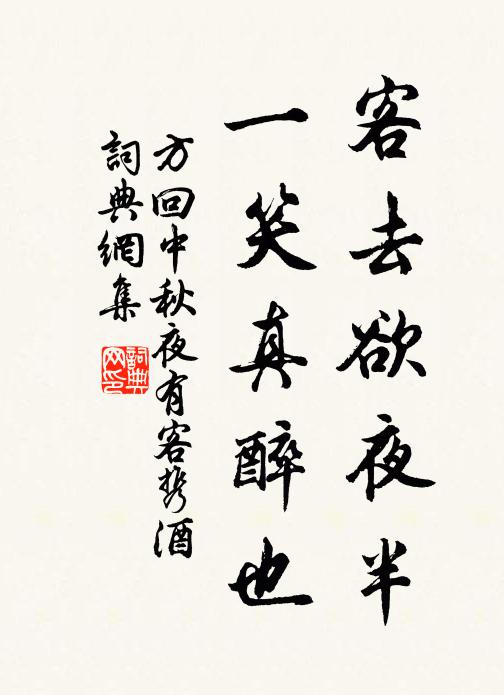 客去欲夜半
一笑真醉也
方回中秋夜有客携酒
詞典網集
詞典网印